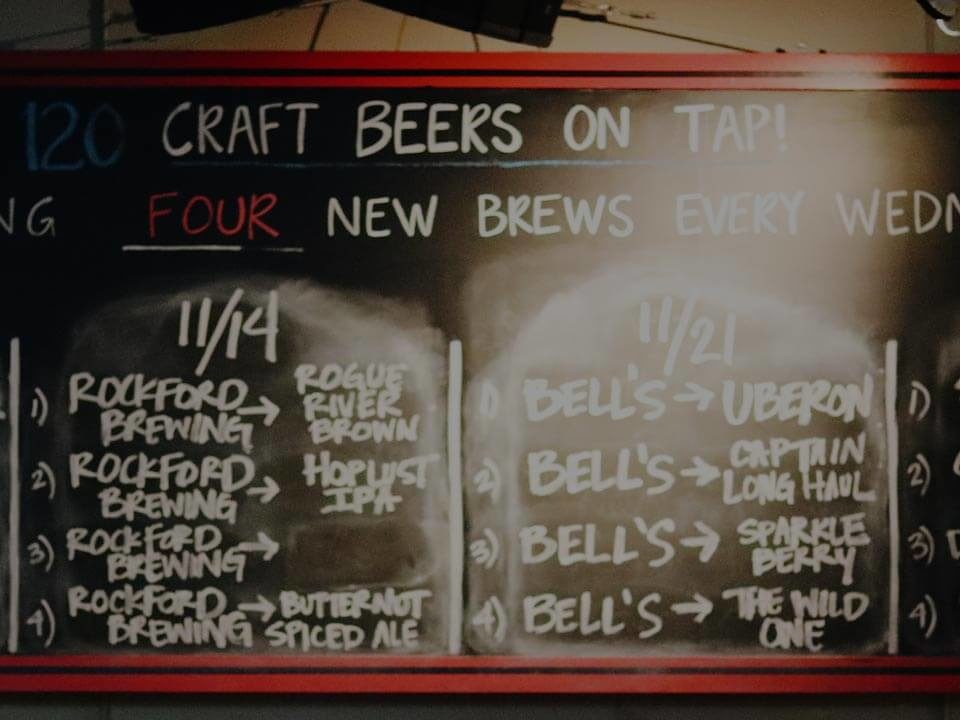 120 CRAFT BEERS ON TAP!
NG FOUR NEW BREWS EVERY WEDN
11/14
1) ROCKFORD BREWING → ROGUE RIVER BROWN
2) ROCKFORD BREWING → HOPLUST IPA
3) ROCKFORD BREWING →
4) ROCKFORD BREWING → BUTTERNUT SPICED ALE
11/21
1) BELL'S → UBERON
2) BELL'S → CAPTAIN LONG HAUL
3) BELL'S → SPARKLE BERRY
4) BELL'S → THE WILD ONE
1)
2)
3)
4)